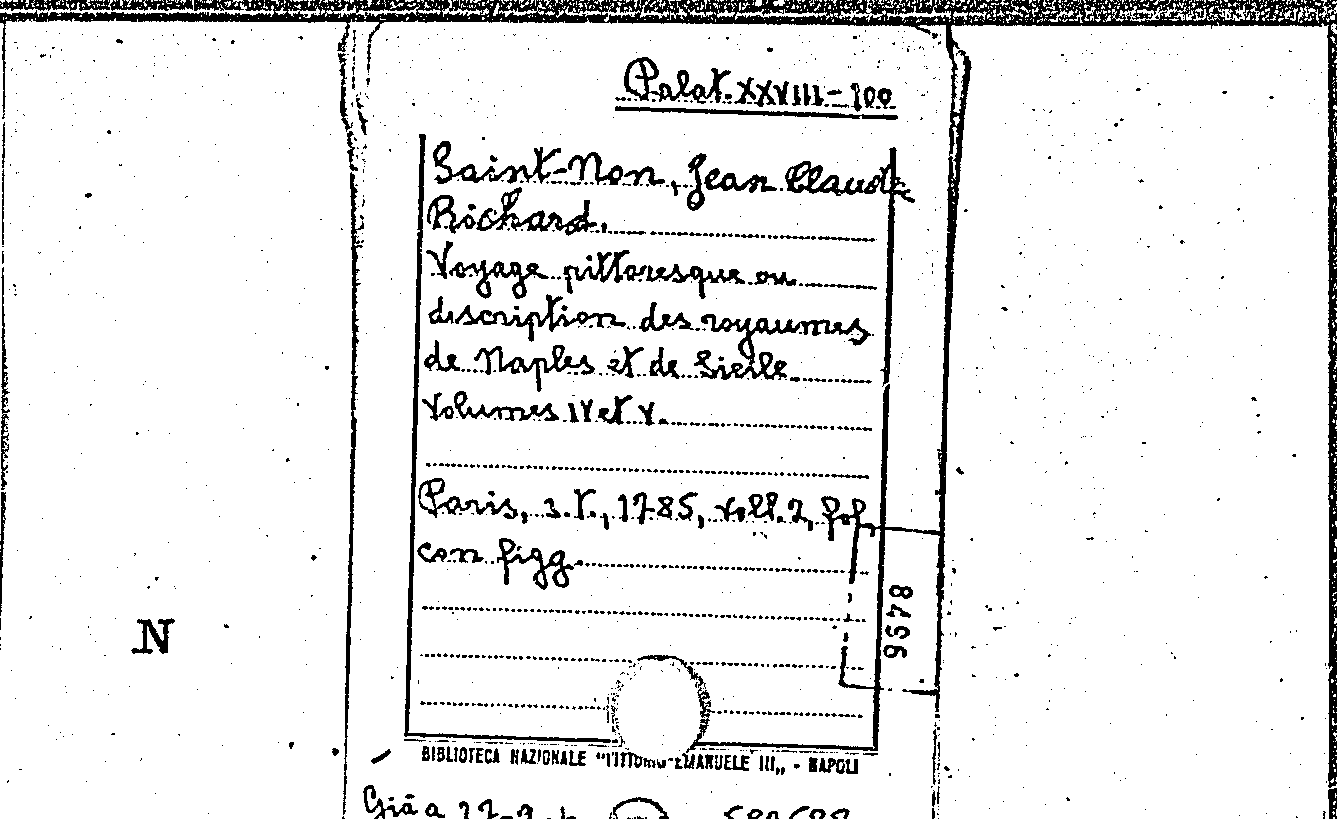 Palat. XXVIII-100
Saint-Non, Jean Claude
Richard.
Voyage pittoresque ou
description des royaumes
de Naples et de Sicile.
Volumes IV et V.
Paris, s.t., 1785, voll. 2, fol.,
con figg.
8456
N
BIBLIOTECA NAZIONALE "VITTORIO EMANUELE III„ - NAPOLI
Già a